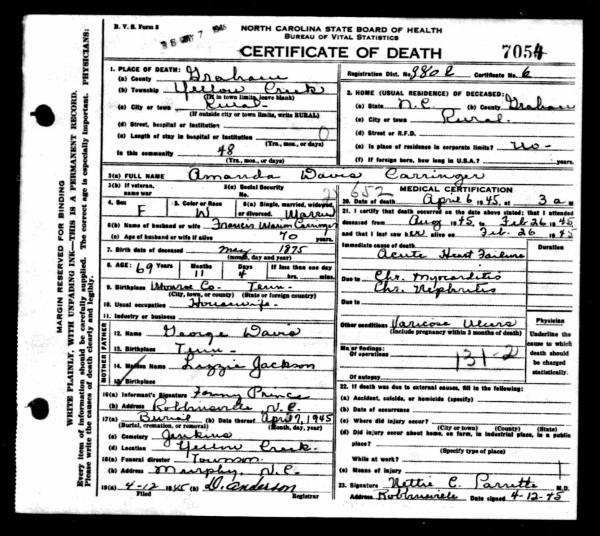 B. V. S. Form 2
NORTH CAROLINA STATE BOARD OF HEALTH
BUREAU OF VITAL STATISTICS
CERTIFICATE OF DEATH 7054
MARGIN RESERVED FOR BINDING
WRITE PLAINLY, WITH UNFADING INK—THIS IS A PERMANENT RECORD.
Every item of information should be carefully supplied. The correct age is especially important. PHYSICIANS:
Please write the causes of death clearly and legibly.
1. PLACE OF DEATH:
(a) County Graham
(b) Township Yellow Creek
(If in town limits, leave blank)
(c) City or town Rural
(If outside city or town limits, write RURAL)
(d) Street, hospital or institution
(e) Length of stay in hospital or institution 0
(Yrs., mos., or days)
In this community 48
(Yrs., mos., or days)
Registration Dist. No. Certificate No. 6
2. HOME (USUAL RESIDENCE) OF DECEASED:
(a) State N.C. (b) County Graham
(c) City or town Rural.
(d) Street or R.F.D.
(e) Is place of residence in corporate limits? no-
(f) If foreign born, how long in U.S.A.?
3(a) FULL NAME Amanda Davis Carringer
3(b) If veteran, name war
3(c) Social Security No.
4. Sex F
5. Color or Race W
6(a) Single, married, widowed, or divorced. Married
6(b) Name of husband or wife Francis Carringer
6(c) Age of husband or wife if alive 70 years
7. Birth date of deceased May 1875
(month, day and year)
8. AGE: 69 Years 11 Months 4 Days If less than one day hrs. min.
9. Birthplace Monroe Co. Tenn.
(City, town, or county) (State or foreign country)
10. Usual occupation Housewife
11. Industry or business
FATHER
12. Name George Davis
13. Birthplace Tenn-
MOTHER
14. Maiden Name Lizzie Jackson
15. Birthplace
16(a) Informant's Signature Prince
(b) Address Robbinsville N.C.
17(a) Burial (b) Date thereof April 7, 1945
(Burial, cremation, or removal) (Month, day, year)
(c) Cemetery Jenkins
(d) Location Yellow Creek.
18(a) Funeral director Townson
(b) Address Murphy, N.C.
19(a) 4-12 1945 (b) D. Anderson
Filed Registrar
652 MEDICAL CERTIFICATION
20. Date of death April 6 1945, at 3 a m
21. I certify that death occurred on the date above stated; that I attended
deceased from Aug 1945 to Feb 26 1945
and that I last saw her alive on Feb. 26 1945
Immediate cause of death Duration
Acute Heart Failure
Due to Chr. Myocarditis
Due to Chr. Nephritis
Other conditions Varicose Ulcers
(Include pregnancy within 3 months of death)
Physician
Underline the cause to which death should be charged statistically.
Major findings:
Of operations 131-2
Of autopsy
22. If death was due to external causes, fill in the following:
(a) Accident, suicide, or homicide (specify)
(b) Date of occurrence
(c) Where did injury occur?
(City or town) (County) (State)
(d) Did injury occur about home, on farm, in industrial place, in a
public place?
(Specify type of place)
While at work?
(e) Means of injury
23. Signature C. M.D.
Address Robbinsville Date signed 4-12-45